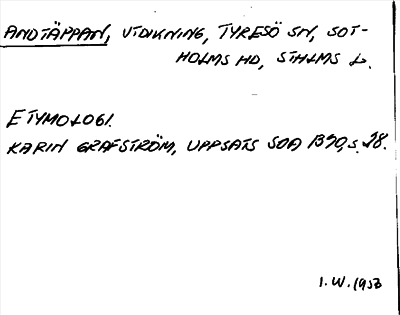 ANDTÄPPAN, UTDIKNING, TYRESÖ SN, SOT-
HOLMS HD, STHLMS L.
ETYMOLOGI.
KARIN GRAFSTRÖM, UPPSATS SOA 1370, S. 28.
I. W. 1953